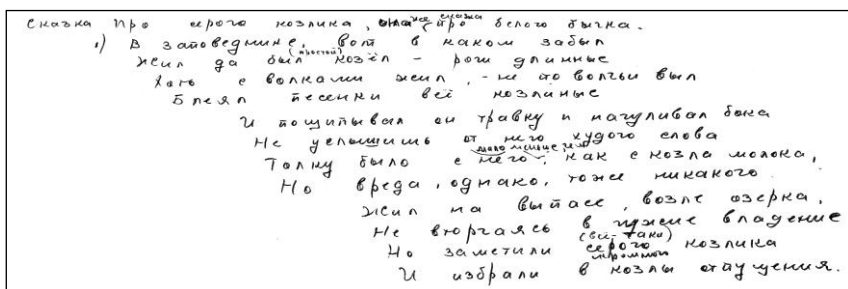 Сказка про серого козлика, она же сказка про белого бычка.
1) В заповеднике, вот в каком забыл
(простой)
Жил да был козёл – рога длинные
Хоть с волками жил, – не по волчьи выл
Блеял песенки всё козлиные
И пощипывал он травку и нагуливал бока
Не услышишь от него худого слова
Толку было с него, как с козла молока,
Но вреда, однако, тоже никакого
Жил на выпасе, возле озерка,
Не вторгаясь в чужие владение
(всё-таки)
Но заметили серого козлика
скромного
И избрали в козлы отпущения.